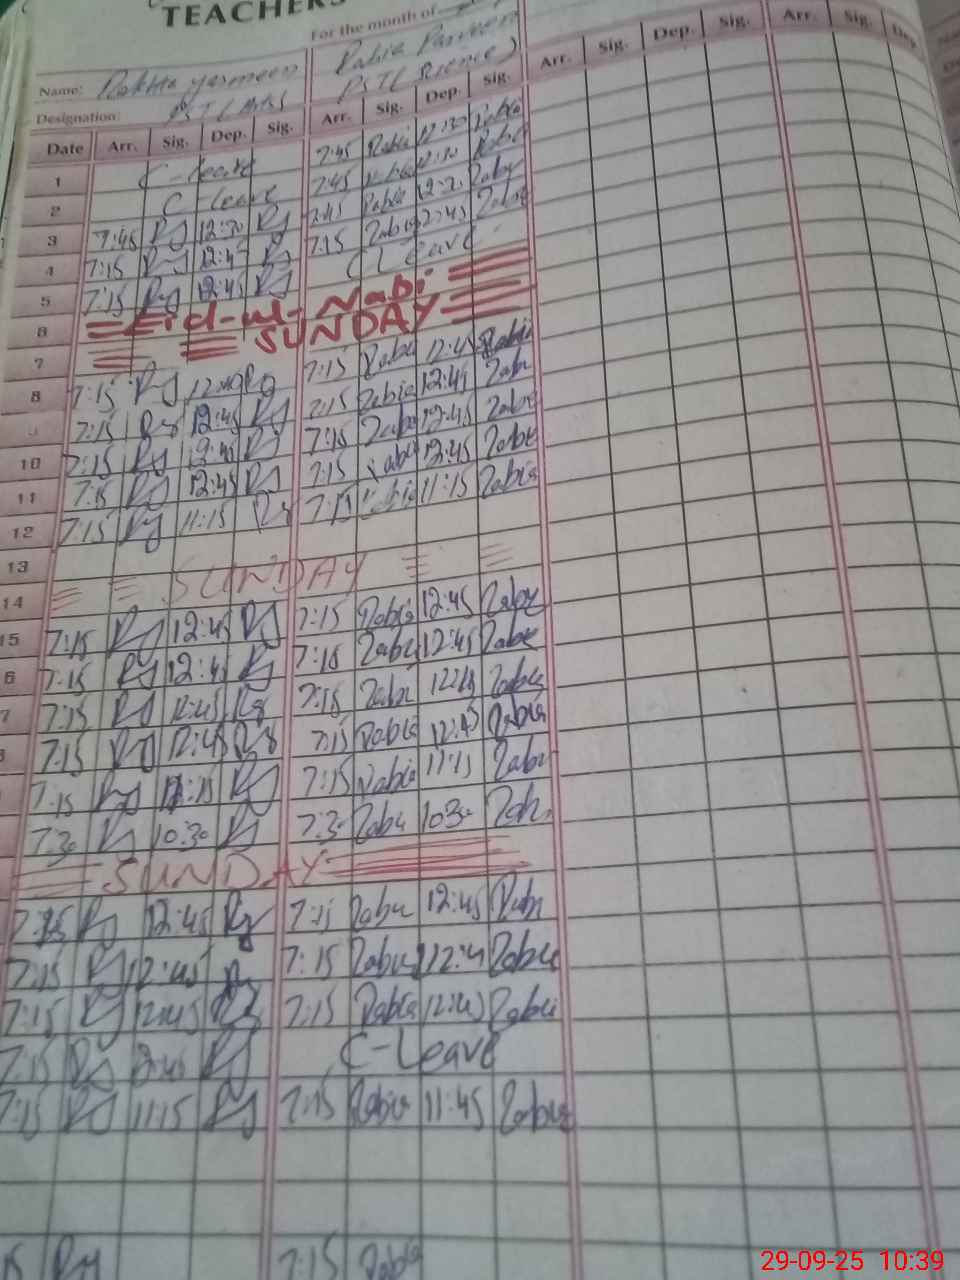 TEACHERS
For the month of
Name: Rakhia yasmeen Rabia Parveen
Designation: PST (Arts) PST (Science)
Date Arr. Sig. Dep. Sig. Arr. Sig. Dep. Sig. Arr. Sig. Dep. Sig. Arr. Sig. Dep.
1 C-leave 7:45 Rabia 12:30 Rabia
2 C-leave 7:45 12:30 Rabia
3 7:45 Ry 12:30 Ry 7:45 Rabia 12:30 Rabia
4 7:15 Ry 12:45 Ry 7:15 Rabia 12:45 Rabia
5 7:15 Ry 12:45 Ry C Leave
6 Eid-ul-Nabi
7 SUNDAY
8 7:15 Ry 12:45 Ry 7:15 Rabia 12:45 Rabia
7:15 Ry 12:45 Ry 7:15 Rabia 12:45 Rabia
10 7:15 Ry 12:45 Ry 7:15 Rabia 12:45 Rabia
11 7:15 Ry 12:45 Ry 7:15 Rabia 12:45 Rabia
12 7:15 Ry 11:15 Ry 7:15 Rabia 11:15 Rabia
13
14 SUNDAY
15 7:15 Ry 12:45 Ry 7:15 Rabia 12:45 Rabia
6 7:15 Ry 12:45 Ry 7:15 Rabia 12:45 Rabia
7 7:15 Ry 12:45 Ry 7:15 Rabia 12:45 Rabia
7:15 Ry 12:45 Ry 7:15 Rabia 12:45 Rabia
7:15 Ry 11:15 Ry 7:15 Rabia 11:15 Rabia
7:30 Ry 10:30 Ry 7:30 Rabia 10:30 Rabia
SUNDAY
7:15 Ry 12:45 Ry 7:15 Rabia 12:45 Rabia
7:15 Ry 12:45 Ry 7:15 Rabia 12:45 Rabia
7:15 Ry 12:45 Ry 7:15 Rabia 12:45 Rabia
7:15 Ry 12:45 Ry C-Leave
7:15 Ry 11:15 Ry 7:15 Rabia 11:45 Rabia
15 Ry 7:15 Rabia
29-09-25 10:39